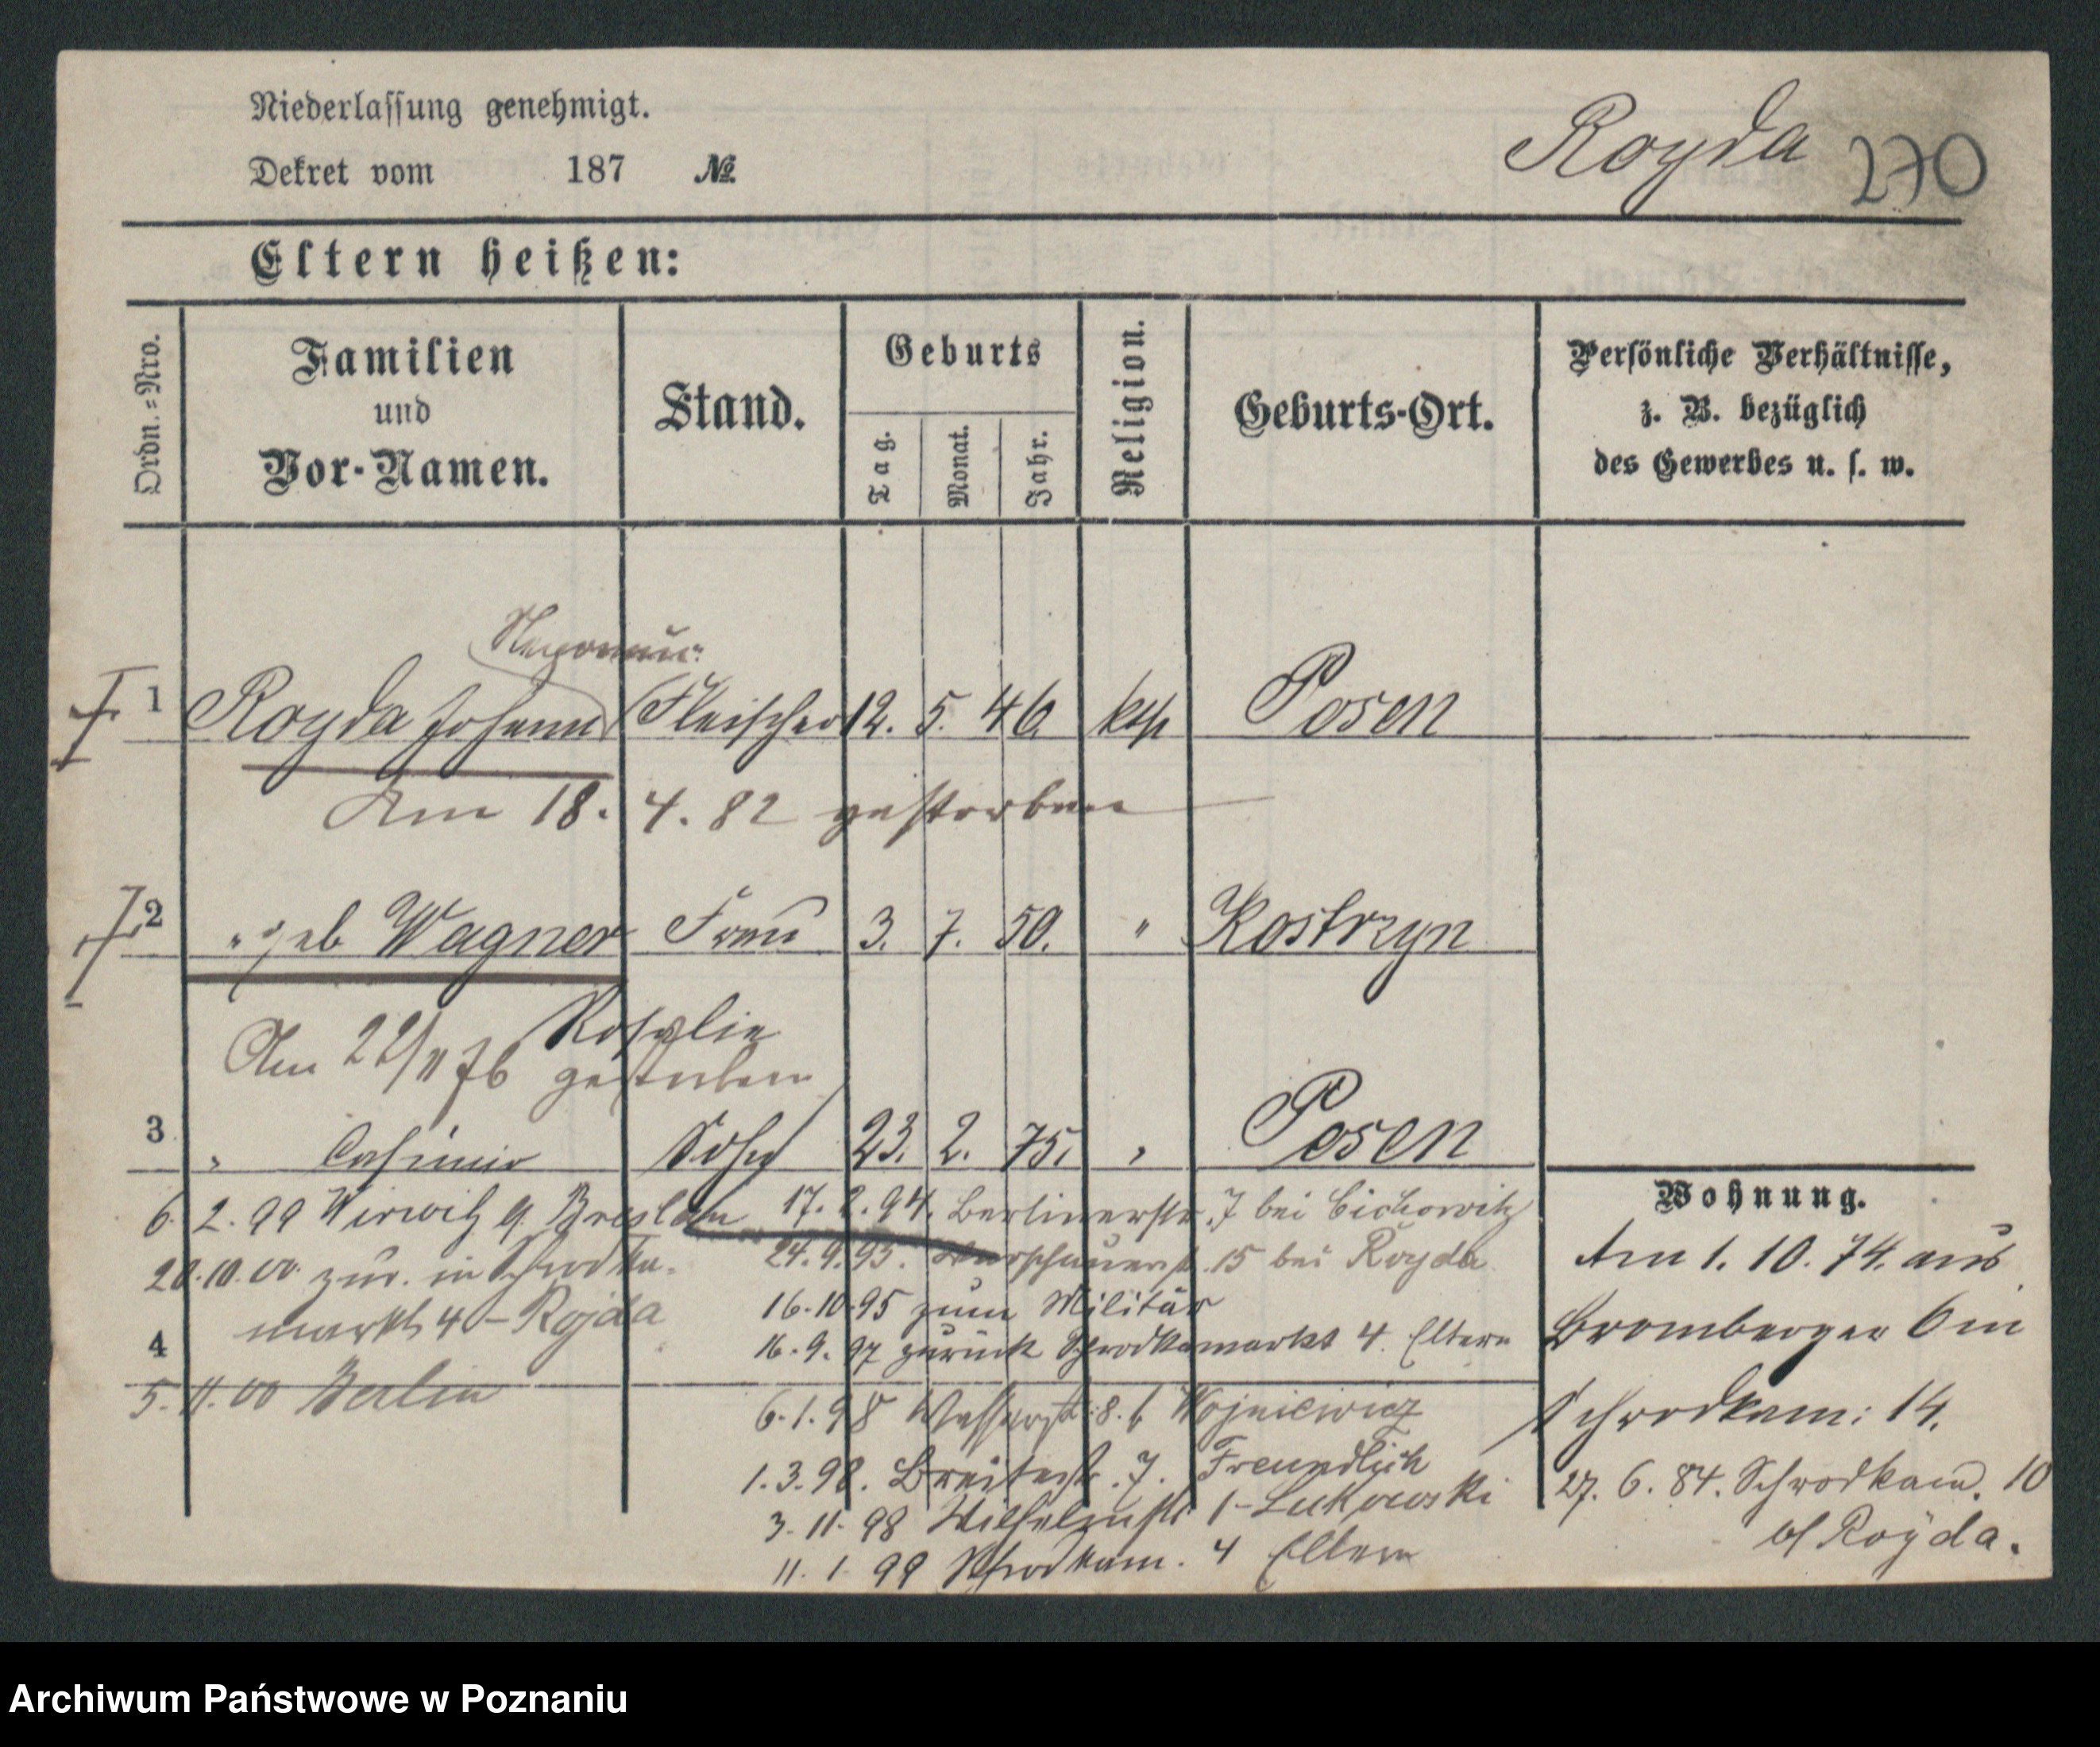 Niederlassung genehmigt.
Dekret vom 187 №
Royda 270
Eltern heißen:
Ordn.-Nro.
Familien
und
Vor-Namen.
Stand.
Geburts
Tag.
Monat.
Jahr.
Religion.
Geburts-Ort.
Persönliche Verhältnisse,
z. B. bezüglich
des Gewerbes u. s. w.
1 Royda Johann Fleischer 12. 5. 46 kath Posen
Am 18. 4. 82 gestorben
2 " geb Wagner Frau 3. 7. 50. " Kostrzyn
Rosalie
Am 22/11 76 gestorben
3 " Casimir Sohn 23. 2. 75. " Posen
6. 2. 99 Breslau
20.10.00. zur. in Schrodka-
markt 4 - Rojda
4
5. 11. 00 Berlin
17. 2. 94. Berlinerstr. 7 bei Cichowitz
24. 9. 95. Warschauerst. 15 bei Royda
16.10.95 zum Militär
16. 9. 97 zurück Schrodkamarkt 4. Eltern
6. 1. 98 Wasserstr. 8. b Wojniewicz
1. 3. 98. Breitestr. 7. Freundlich
3. 11. 98 Wilhelmstr 1 - Lukowski
11. 1. 99 Schrodkam. 4 Eltern
Wohnung.
Am 1. 10. 74. aus
Bromberger 6 in
Schrodkam: 14.
27. 6. 84. Schrodkam. 10
b/ Royda.
Archiwum Państwowe w Poznaniu